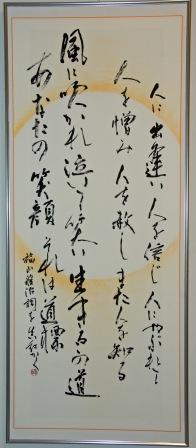 人に出逢い 人を信じ 人にやぶれて
人を憎み 人を赦し また人を知る
風に吹かれ 泣いて笑い 生きるこの道
あなたの笑顔 それは道標
福山雅治詞を